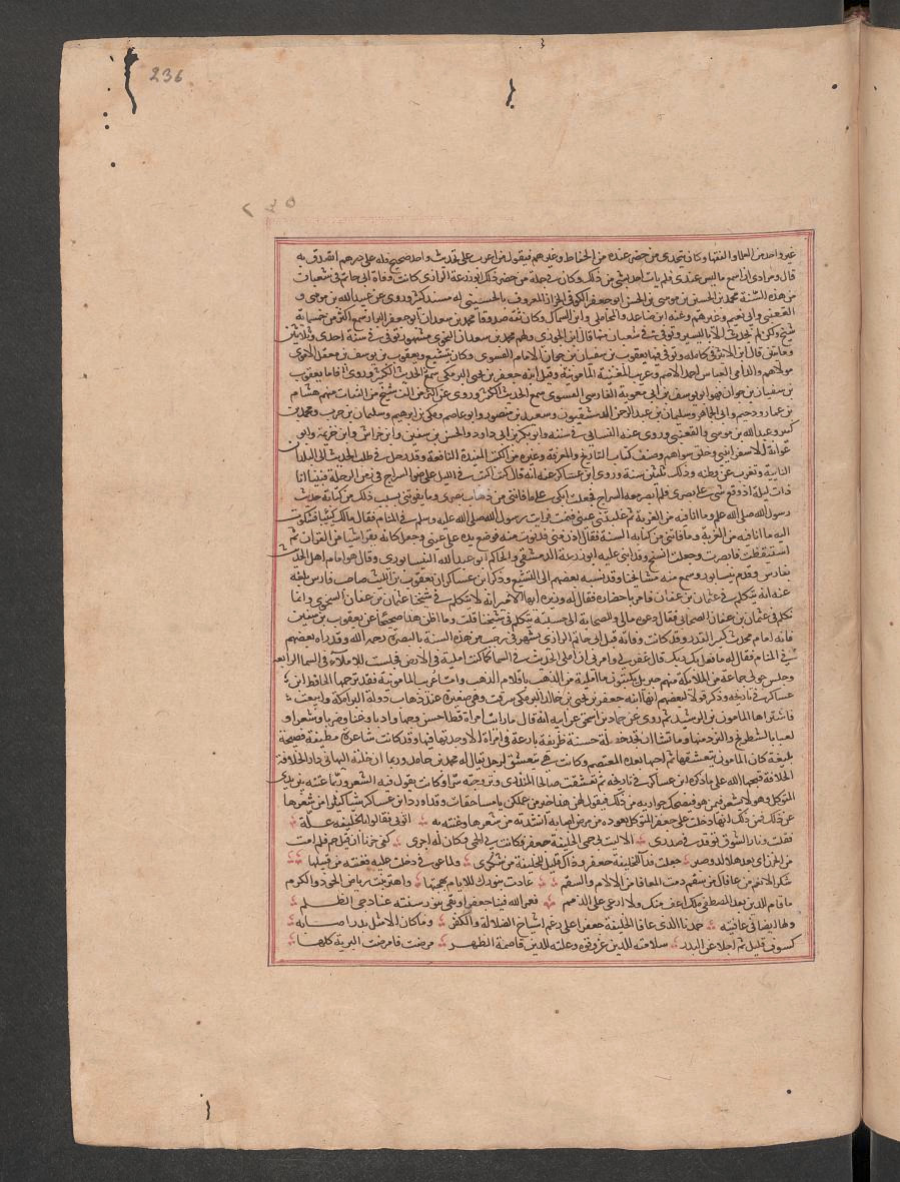 236
غير واحد من العلما والفقها وكان يتحدى من حضر عنده من الحفاظ وغيرهم فيقول من اغرب على بحديث واحد صحيح فله على درهم اتصدق به
قال ومرادى اسمع ما ليس عندى فلم يات احد بشى من ذلك وكان فى جملة من حضر ذلك ابو زرعة الرازى كانت وفاة ابى حاتم فى شعبان
من هذه السنة محمد بن الحسين بن موسى بن الحسن ابو جعفر الكوفى الخزاز المعروف بالحسينى له مسند كبير وروى عن عبيد الله بن موسى و
القعنبى وابى نعيم وغيرهم وعنه ابن صاعد والمحاملى وابن السماك وكان ثقة صدوقا محمد بن سعدان ابو جعفر البزاز سمع اكثر من خمسماية
شيخ ولكن لم يحدث الا باليسير وتوفى فى شعبان منها قال ابن الجوزى ولهم محمد بن سعدان النحوى مشهور توفى فى سنة احدى وثلاثين
وماتين قال ابن الاثير فى كامله وتوفى فيها يعقوب بن سفيان بن حوان الامام الفسوى وكان يتشيع ويعقوب بن يوسف بن معقل الاموى
مولاهم والد ابى العباس احمد الاصم وعريب المغنية المامونية وقيل انها جعفر بن يحيى البرمكى سمع الحديث الكثير وروى اما يعقوب
بن سفيان بن حوان فهو ابو يوسف بن ابى معوية الفارسى الفسوى سمع الحديث الكثير وروى عن اكثر من الف شيخ من الثقات منهم هشام
بن عمار ودحيم وابى الجماهر وسليمان بن عبد الرحمن الدمشقيون وسعيد بن منصور وابو عاصم ومكى بن ابرهيم وسليمان بن حرب ومحمد بن
كثير وعبد الله بن موسى والقعنبى وروى عنه النسائى فى سننه وابو بكر بن ابى داود والحسن بن سفين وابن خراش وابن خزيمة وابو
عوانة الاسفراينى وخلق سواهم وصنف كتاب التاريخ والمعرفة وغيره من الكتب المفيدة النافعة وقد رحل فى طلب الحديث الى البلدان
النايية وتغرب عن وطنه وذلك ثلثين سنة وروى ابن عساكر عنه انه قال كنت اكتب فى الليل على ضوء السراج فى زمن الرحلة فبينا انا
ذات ليلة اذ وقع شى على بصرى فلم ابصر معه السراج فجعلت ابكى على ما فاتنى من ذهاب بصرى وما يفوتنى بسبب ذلك من كتابة حديث
رسول الله صلى الله عليه وسلم وما انا فيه من الغربة ثم غلبتنى عينى فنمت فرايت رسول الله صلى الله عليه وسلم فى المنام فقال مالك فشكوت
اليه ما انا فيه من الغربة وما فاتنى من كتابة السنة فقال ادن منى فدنوت منه فوضع يده على عينى وجعل كانه يقرا شيا من القران ثم
استيقظت فابصرت وجعلت انسخ وقد اثنى عليه ابو زرعة الدمشقى والحاكم ابو عبد الله النيسابورى وقال هو امام اهل الحديث
بفارس وقدم نيسابور وسمع منه مشايخنا وقد نسبه بعضهم الى التشيع وذكر ابن عساكر ان يعقوب بن الليث صاحب فارس بلغه
عنه انه يتكلم فى عثمان بن عفان فامر باحضاره فقال له وزيره ايها الامير انه لا يتكلم فى شيخنا عثمان بن عفان السجزى وانما
تكلم فى عثمان بن عفان الصحابى فقال دعوه مالى وللصحابة انى حسبته يتكلم فى شيخنا قلت وما اظن هذا صحيحا عن يعقوب بن سفين
فانه امام محدث كبير القدر وقد كانت وفاته قبل ابى حاتم الرازى بشهر فى رجب من هذه السنة بالبصرة رحمه الله وقد راه بعضهم
فى المنام فقال له ما فعل بك ربك قال غفر لى وامرنى ان املى الحديث فى السما كما كنت امليه فى الارض فجلست للاملاء فى السما الرابعة
وجلس حولى جماعة من الملايكة منهم جبريل يكتبون ما امليه من الحديث باقلام الذهب واما عريب المامونية فقد ترجمها الحافظ ابن
عساكر فى تاريخه وذكر قولا لبعضهم انها ابنة جعفر بن يحيى بن خالد البرمكى سرقت وهى صغيرة عند ذهاب دولة البرامكة وابيعت
فاشتراها المامون بن الرشيد ثم روى عن حماد بن اسحق عن ابيه انه قال ما رايت امراة قط احسن وجها وادبا وغنا وضربا وشعرا و
لعبا بالشطرنج والنرد منها وما تشا ان تجد خصلة حسنة ظريفة بارعة فى امراة الا وجدتها فيها وقد كانت شاعرة مطبقة فصيحة
بليغة كان المامون يتعشقها ثم احبها بعده المعتصم وكانت هى تتعشق لرجل يقال له محمد بن حامد وربما ادخلته اليها فى دار الخلافة
الخلافة قبحها الله على ما ذكره ابن عساكر فى تاريخه ثم تعشقت صالحا المنذرى وتزوجته سرا وكانت تقول فيه الشعر وربما غنته بين يدى
المتوكل وهو لا يشعر فيمن هو فيضحك جواريه من ذلك فيقول لهن هذا خير من عملكن يا سحاقات وقد اورد ابن عساكر شيا كثيرا من شعرها
فمن ذلك انها دخلت على جعفر المتوكل تعوده من مرض اصابه انشدته من شعرها وغنته به اتونى فقالوا بالخليفة علة
فقلت ونار الشوق توقد فى صدرى الا ليت بى حمى الخليفة جعفر فكانت بى الحمى وكان له اجرى كفى حزنا ان قيل حم فلم امت
من الحزن انى بعد هذا لذو صبر جعلت فدا للخليفة جعفر وذاك قليل للخليفة من شكرى ولما عوفى دخلت عليه فغنته من قيلها
شكر الانعم من عافاك من سقم دمت المعافا من الالام والسقم عادت بنورك للايام بهجتها واهتز نبت رياض الجود والكرم
ما قام للدين بعد المصطفى ملك اعف منك ولا ارعى على الذمم فعمر الله فينا جعفرا ونفى بنور سنته عنا دجى الظلم
ولها ايضا فى عافيته حمدنا الذى عافا الخليفة جعفرا على رغم اشياخ الضلالة والكفر وما كان الا مثل بدر اصابه
كسوف قليل ثم اجلا عن البدر سلامته للدين عز وقوة وعلته للدين قاصمة الظهر مرضت فامرضت البرية كلها